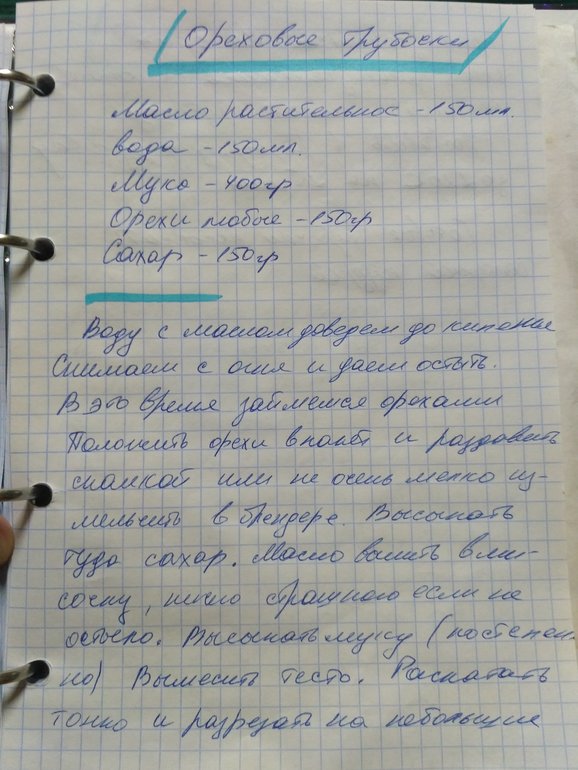 Ореховые трубочки
Масло растительное - 150мл.
Вода - 150мл.
Мука - 400гр
Орехи любые - 150гр
Сахар - 150гр
Воду с маслом доведем до кипенье
Снимаем с огня и даем остыть.
В это время займемся орехами
Положить орехи в пакет и раздавить
скалкой или не очень мелко из-
мельчить в блендере. Высыпать
туда сахар. Масло вылить в ми-
сочку, ничего страшного если не
остыло. Высыпать муку (постепен-
но) Вымесить тесто. Раскатать
тонко и разрезать на небольшие